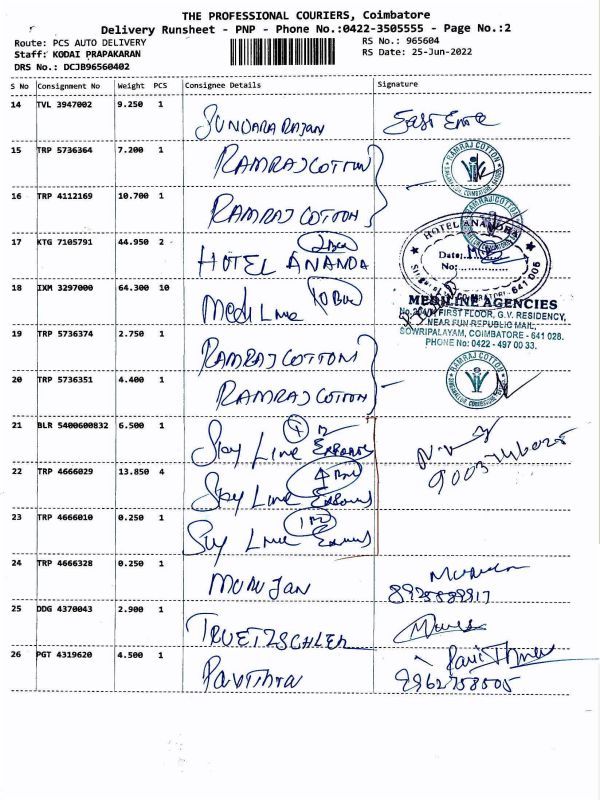 THE PROFESSIONAL COURIERS, Coimbatore
Delivery Runsheet - PNP - Phone No.:0422-3505555 - Page No.:2
Route: PCS AUTO DELIVERY
RS No.: 965604
Staff: KODAI PRAPAKARAN
RS Date: 25-Jun-2022
DRS No.: DCJB96560402
S No Consignment No Weight PCS Consignee Details Signature
14 TVL 3947002 9.250 1 SUNDARA RAJAN
15 TRP 5736364 7.200 1 RAMRAJ COTTON
RAMRAJ COTTON
16 TRP 4112169 10.700 1 RAMRAJ COTTON
17 KTG 7105791 44.950 2 HOTEL ANANDA
HOTEL ANANDHA
Date:
No:
641 005
18 IXM 3297000 64.300 10 Medi Line
MEDILINE AGENCIES
FIRST FLOOR, G.V. RESIDENCY,
NEAR FUN REPUBLIC MAIL,
SOWRIPALAYAM, COIMBATORE - 641 028.
PHONE No: 0422 - 497 00 33.
19 TRP 5736374 2.750 1 RAMRAJ COTTON
20 TRP 5736351 4.400 1 RAMRAJ COTTON
RAMRAJ COTTON
21 BLR 5400600832 6.500 1 Sky Line Exports
22 TRP 4666029 13.850 4 Sky Line Exports
23 TRP 4666010 0.250 1 Sky Line Exports
24 TRP 4666328 0.250 1 MURUJAN
25 DDG 4370043 2.900 1 TRUETZSCHLER
26 PGT 4319620 4.500 1 Pavithra
9962758505